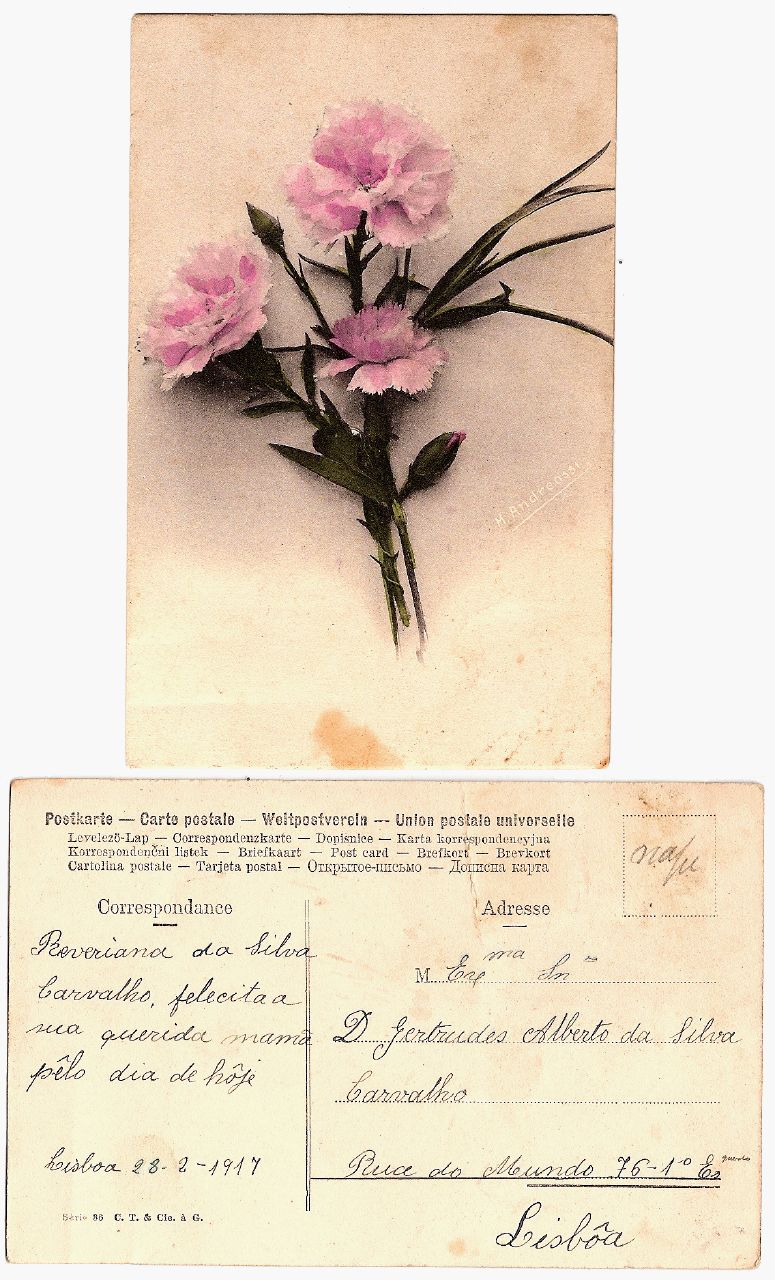 H. Andreossi
Postkarte — Carte postale — Weltpostverein — Union postale universelle
Levelező-Lap — Correspondenzkarte — Dopisnice — Karta korrespondencyjna
Korrespondenční listek — Briefkaart — Post card — Brefkort — Brevkort
Cartolina postale — Tarjeta postal — Открытое-письмо — Дописна карта
Correspondance
Reveriana da Silva
Carvalho, felecita a
sua querida mamã
pêlo dia de hôje
Lisboa 28-2-1917
Série 86 C. T. & Cie. à G.
Adresse
M. Exma Snra
D Gertrudes Alberto da Silva
Carvalho
Rua do Mundo 76-1º Esquerdo
Lisbôa